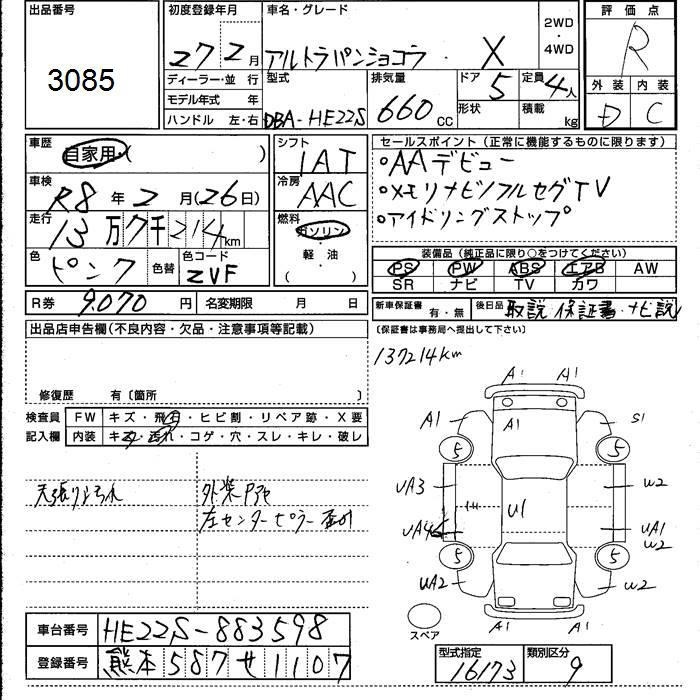 出品番号
3085
初度登録年月
27 2月
車名・グレード
アルトラパンショコラ X
2WD
・
4WD
評価点
R
外装 内装
D C
ディーラー・並行
モデル年式 年
ハンドル 左・右
型式
DBA-HE22S
排気量
660cc
ドア
5
形状
定員
4人
積載
kg
車歴
自家用・( )
シフト
IAT
冷房
AAC
燃料
ガソリン
・
軽・油
( )
車検
R8年2月(26日)
走行
13万7千214km
色
ピンク
色替
色コード
ZVF
R券 9.070 円
名変期限 月 日
セールスポイント(正常に機能するものに限ります)
○AAデビュー
○メモリナビ/フルセグTV
○アイドリングストップ
装備品(純正品に限り○をつけてください)
PS PW ABS エアB AW
SR ナビ TV カワ
新車保証書 有・無
後日品 取説 保証書・ナビ説
(保証書は事務局へ提出して下さい)
出品店申告欄(不良内容・欠品・注意事項等記載)
修復歴 有〔箇所 〕
検査員
記入欄
FW キズ・飛石・ヒビ割・リペア跡・X要
内装 キズ・汚れ・コゲ・穴・スレ・キレ・破レ
天張りよごれ
外装
左センターピラー
137214km
A1 A1
A1 A1 S1
5 5
UA3 U1 W2
UA4 UA1
W2
5 5
UA2 W2
A1 A1
スペア
車台番号 HE22S-883598
登録番号 熊本587せ1107
型式指定
16173
類別区分
9